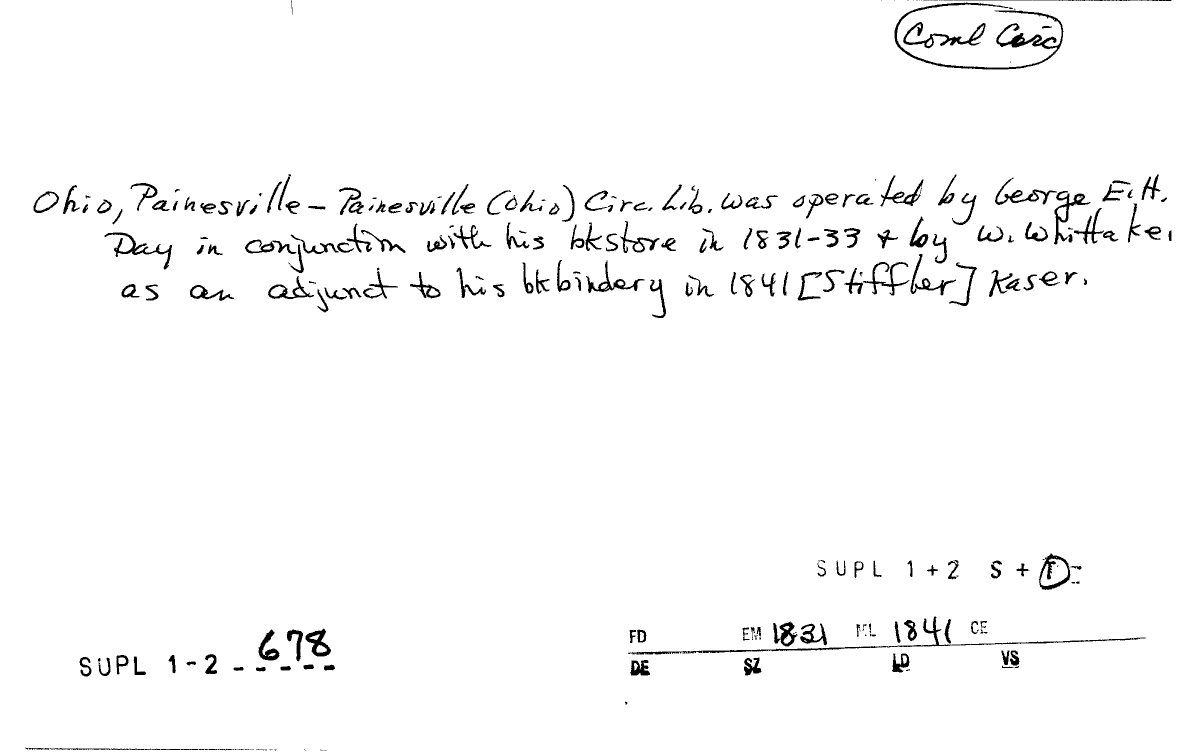 Coml Circ
Ohio, Painesville – Painesville (Ohio) Circ. Lib. was operated by George E. H.
Day in conjunction with his bkstore in 1831-33 + by W. Whittaker
as an adjunct to his bkbindery in 1841 [Stiffler] Kaser.
SUPL 1+2 S +
SUPL 1-2 - 678
FD EM 1831 ML 1841 CE
DE SZ LD VS